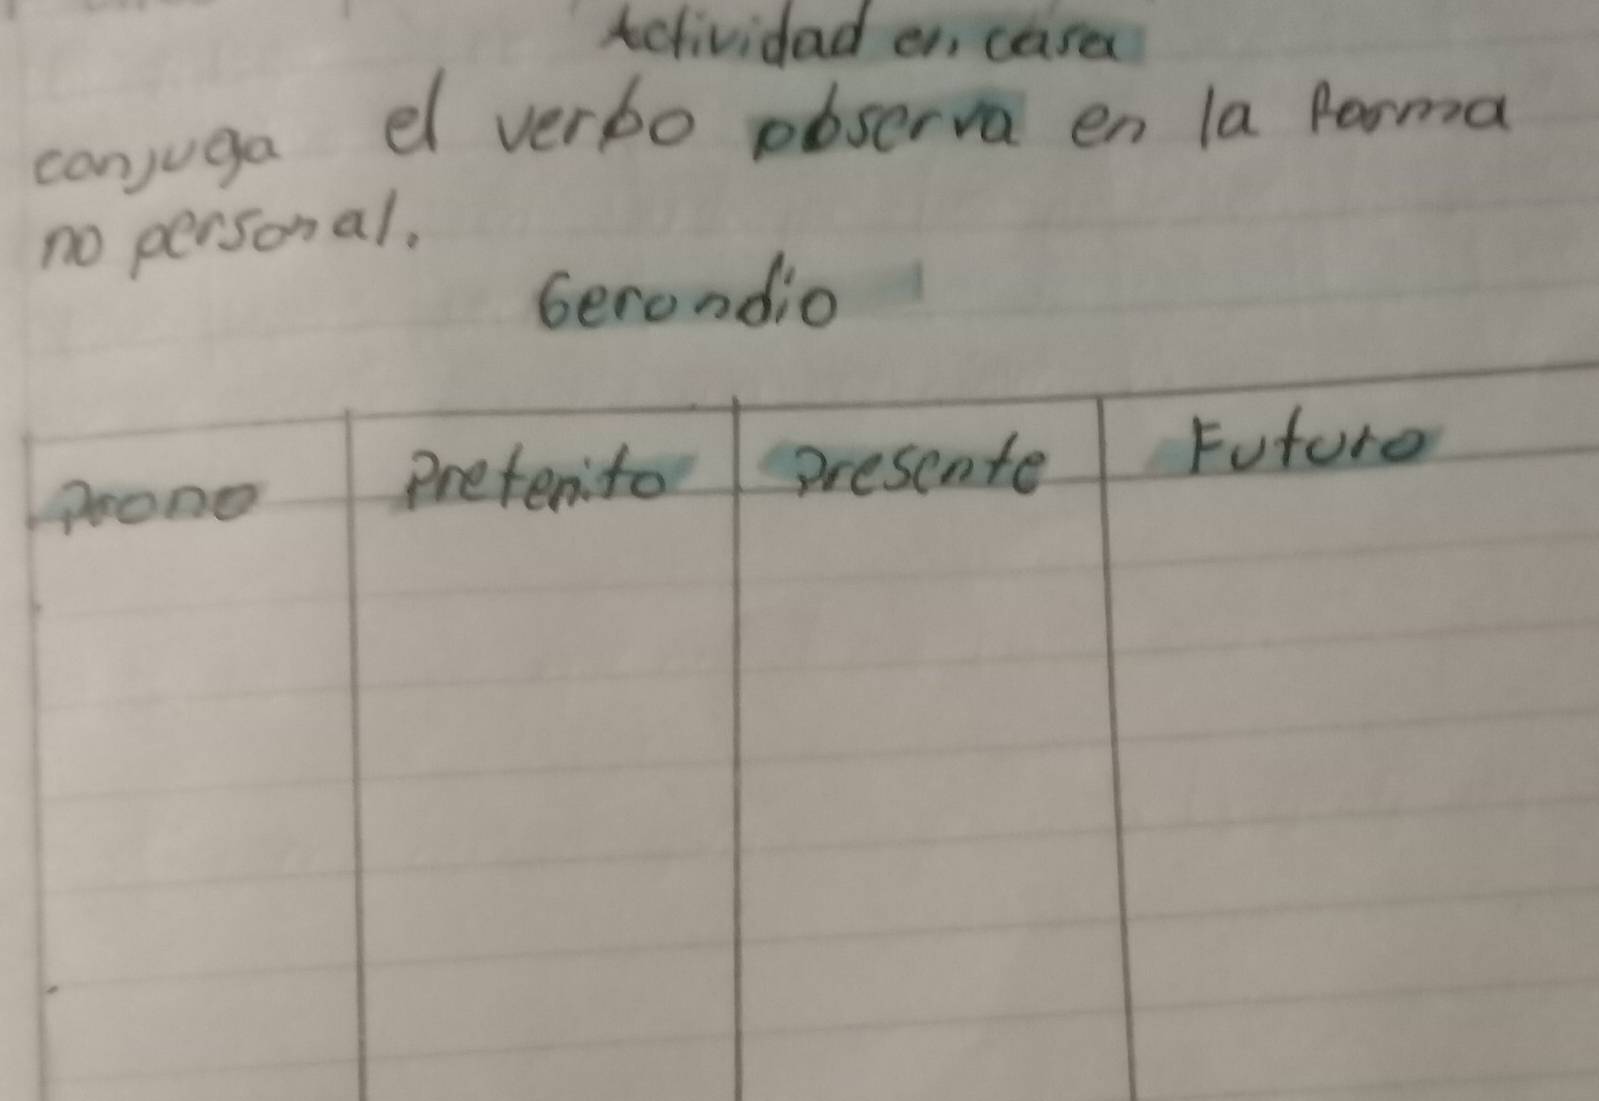 Actividad en casa
conjuga el verbo observa en la forma
no personal.
Gerondio
Prono Preterito Presente Futuro